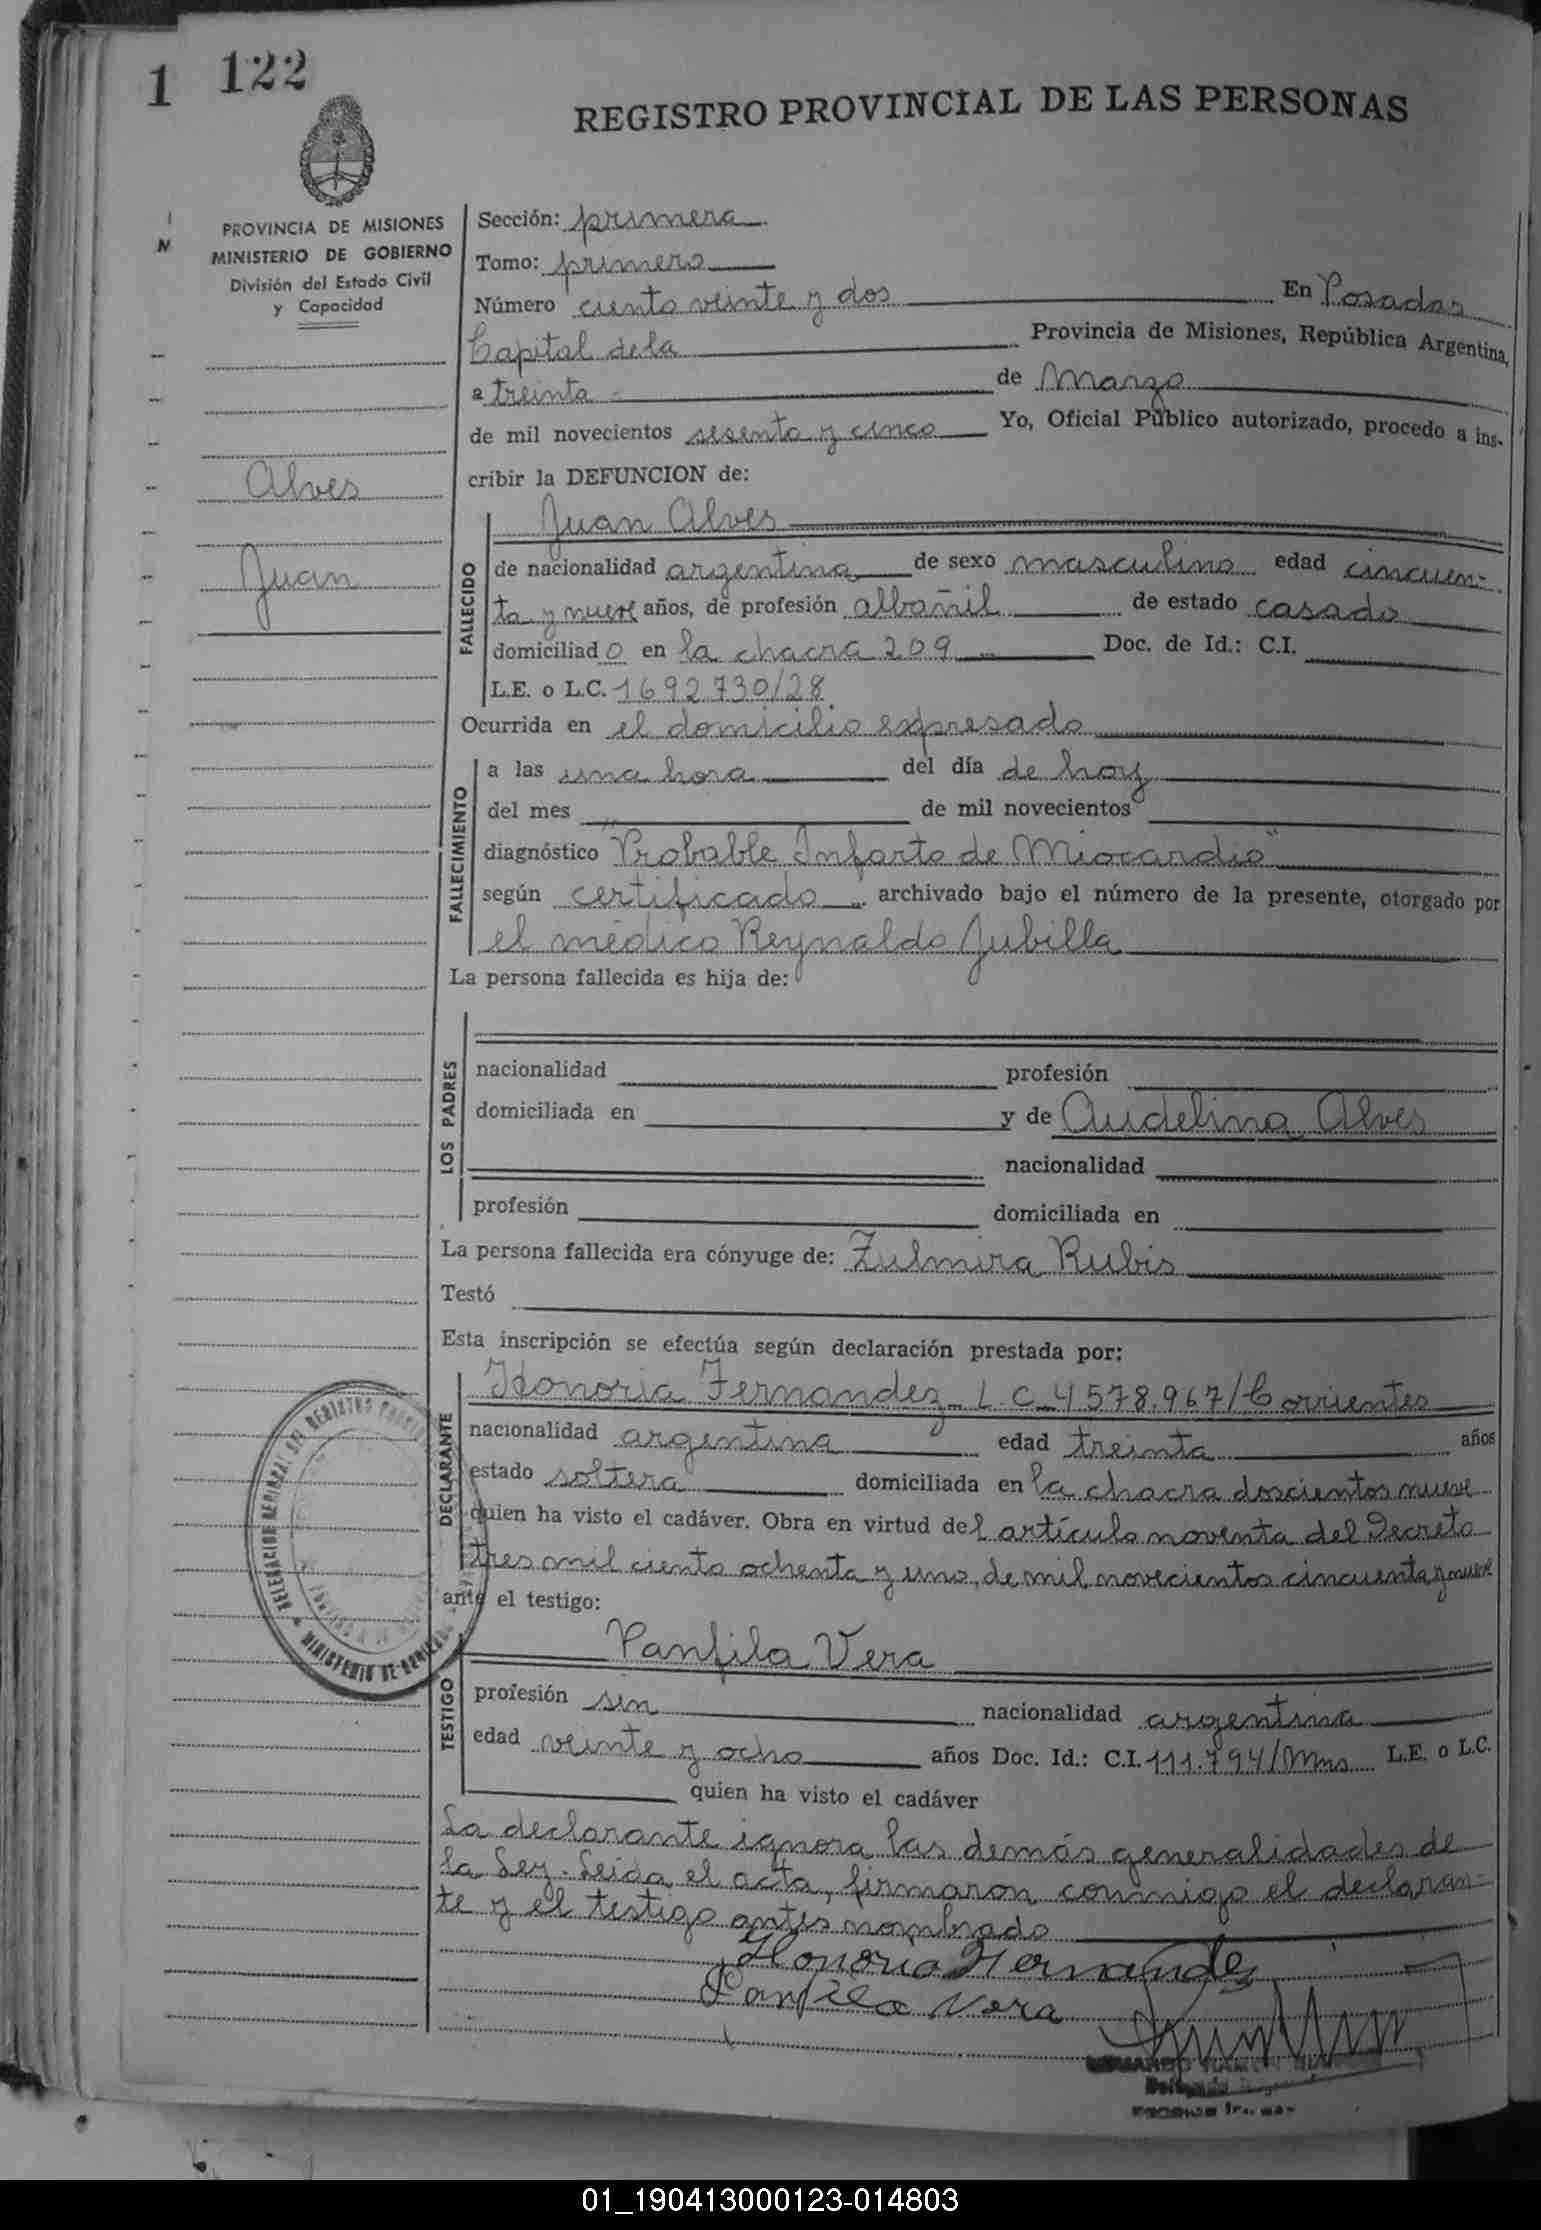 1 122
REGISTRO PROVINCIAL DE LAS PERSONAS
PROVINCIA DE MISIONES
MINISTERIO DE GOBIERNO
División del Estado Civil
y Capacidad
Alves
Juan
Sección: primera
Tomo: primero
Número ciento veinte y dos En Posadas
Capital de la Provincia de Misiones, República Argentina,
a treinta de Marzo
de mil novecientos sesenta y cinco Yo, Oficial Público autorizado, procedo a ins-
cribir la DEFUNCION de:
FALLECIDO
Juan Alves
de nacionalidad argentina de sexo masculino edad cincuen-
ta y nueve años, de profesión albañil de estado casado
domiciliado en la chacra 209 Doc. de Id.: C.I.
L.E. o L.C. 1692730/28
Ocurrida en el domicilio expresado
FALLECIMIENTO
a las una hora del día de hoy
del mes de mil novecientos
diagnóstico "Probable Infarto de Miocardio"
según certificado archivado bajo el número de la presente, otorgado por
el médico Reynaldo Jubilla
La persona fallecida es hija de:
LOS PADRES
nacionalidad profesión
domiciliada en y de Audelina Alves
nacionalidad
profesión domiciliada en
La persona fallecida era cónyuge de: Zulmira Rubis
Testó
Esta inscripción se efectúa según declaración prestada por:
DECLARANTE
Honoria Fernandez L.C. 4578.967/Corrientes
nacionalidad argentina edad treinta años
estado soltera domiciliada en la chacra doscientos nueve
quien ha visto el cadáver. Obra en virtud del artículo noventa del Decreto
tres mil ciento ochenta y uno, de mil novecientos cincuenta y nueve
ante el testigo:
TESTIGO
Panfila Vera
profesión sin nacionalidad argentina
edad veinte y ocho años Doc. Id.: C.I. 111.794/Mnes L.E. o L.C.
quien ha visto el cadáver
La declarante ignora las demás generalidades de
la Ley. Leída el acta, firmaron conmigo el declaran-
te y el testigo antes nombrado
Honoria Fernandez
Panfila Vera
01_190413000123-014803